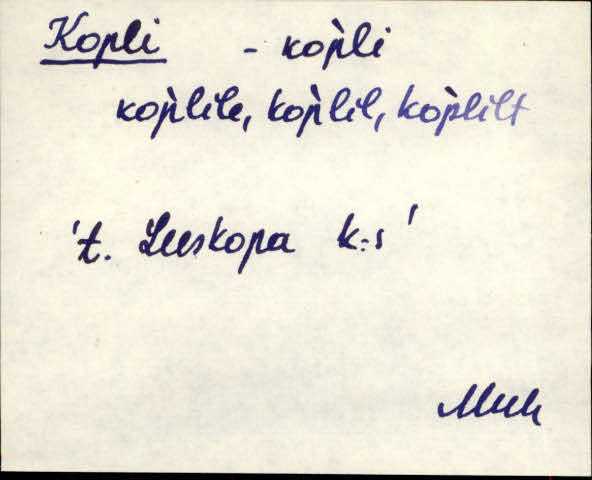 Kopli - kop̀li
kop̀lile, kop̀lil, kop̀lilt
't. Leeskopa k:s'
Muh